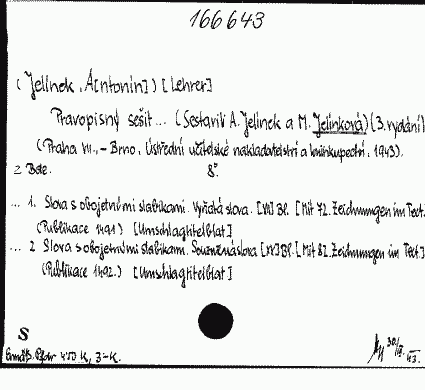 166643
(Jelínek, A[ntonín]) [Lehrer]
Pravopisný sešit... (Sestavil A. Jelínek a M. Jelínková) (3. vydání)
(Praha VII., - Brno, Ústřední učitelské nakladatelství a knihkupectví, 1943).
2 Bde. 8°.
... 1. Slova s obojetnými slabikami. Vyňatá slova. Bl. [Mit 72. Zeichnungen im Text.]
(Publikace 1491) [Umschlagtitelblatt]
... 2 Slova s obojetnými slabikami. Souznená slova [XV] Bl. [Mit 82. Zeichnungen im Text]
(Publikace 1492.) [Umschlagtitelblatt]
S
K, 3-K.
43.